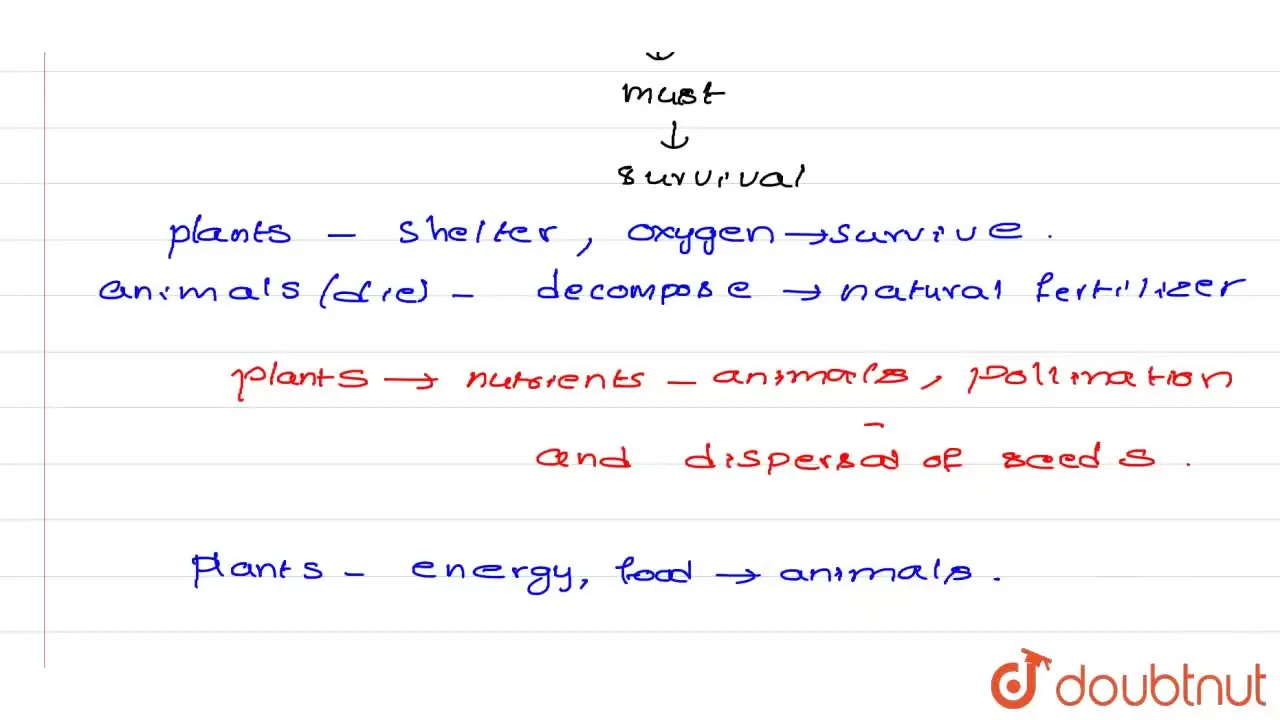 ↓
must
↓
survival
plants - shelter, oxygen → survive.
animals (die) - decompose → natural fertilizer
plants → nutrients - animals, pollination
and dispersal of seeds.
Plants - energy, food → animals.
doubtnut